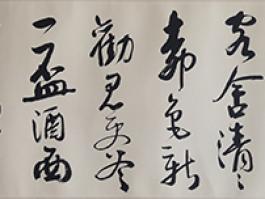 客舍清〻
柳色新
勸君更盡
一盃酒西